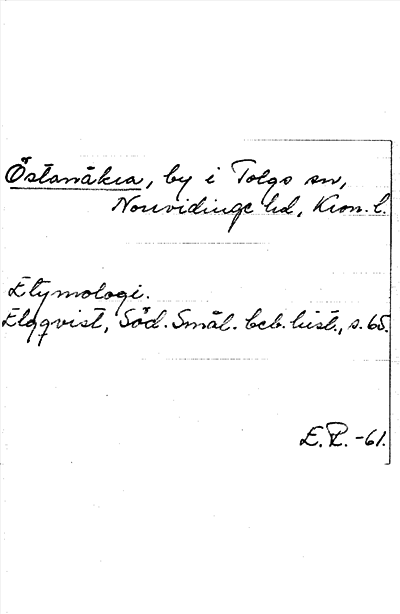 Östanåkra, by i Tolgs sn,
Norrvidinge hd, Kron. l.
Etymologi.
Elgqvist, Söd. Smål. beb. hist., s. 65.
E. P. -61.